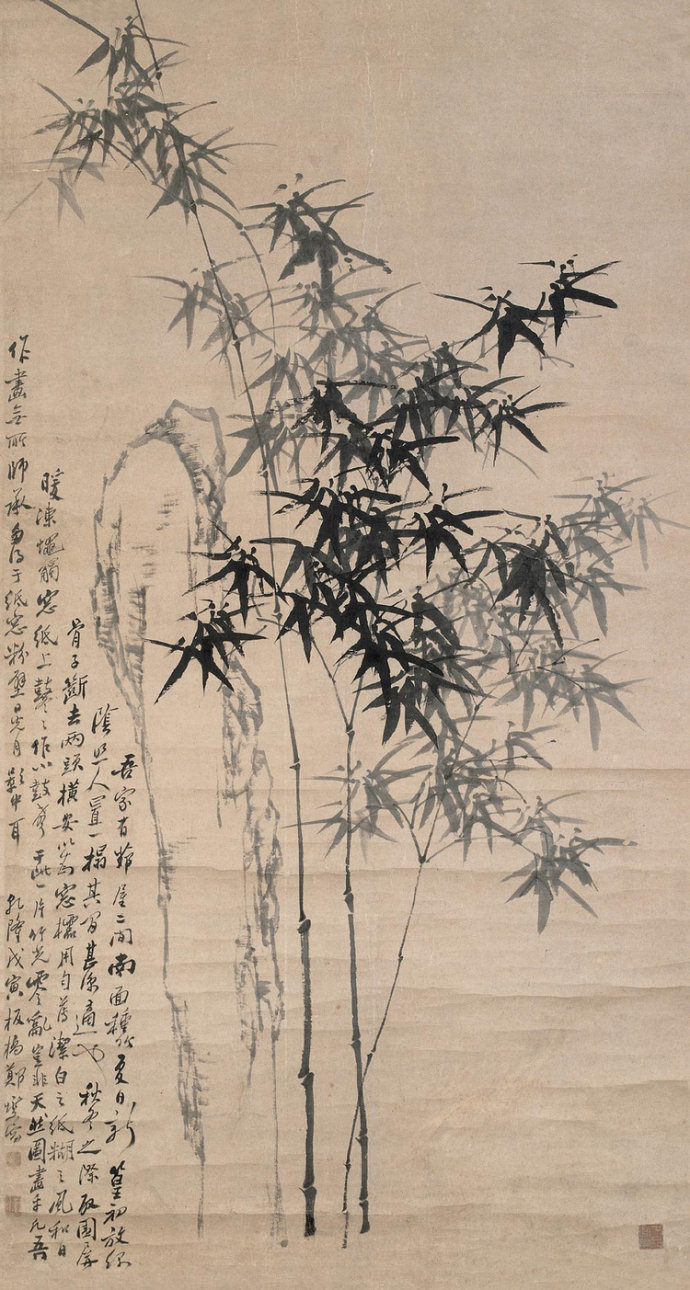 吾家有茆屋二間南面種竹夏日新篁初放綠
陰照人置一榻其間甚涼適也秋冬之際取圍屏
骨子斷去兩頭橫安以為窓櫺用勻薄潔白之紙糊之風和日
暖凍蠅觸窓紙上鼕々作小鼓聲于此一片竹光零亂豈非天然圖畫乎凡吾
作畫無所師承多得于紙窓粉壁日光月影中耳 乾隆戊寅板橋鄭燮寫